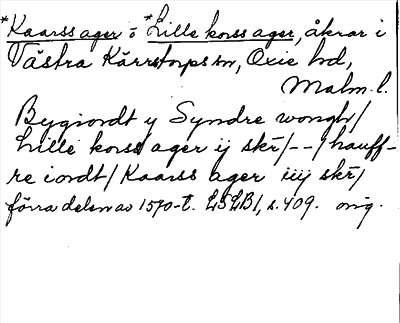 *Kaarss ager o *Lille korss ager, åkrar i
Västra Kärrstorps sn, Oxie hd,
Malm. l.
Bygiordt y Syndre wongh/
Lille korss ager ij skr/--/hauff-
re iordt/Kaarss ager iiij skr/
förra delen av 1570-t. LSLB1, s. 409. orig.